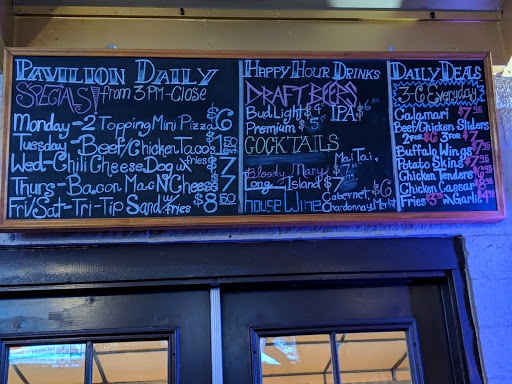 Pavilion Daily
Specials! from 3PM-Close
Monday-2 Topping Mini Pizza $6
Tuesday-Beef/Chicken Tacos
Wed-Chili Cheese Dog w/fries $7
Thurs-Bacon Mac N Cheese $7
Fri/Sat-Tri-Tip Sand w/fries $8.50
Happy Hour Drinks
Draft Beers
Bud Light $4 IPA $6
Premium $5
Cocktails
Mai Tai,
Bloody Mary
Long Island $7
House Wine Cabernet, $6
Chardonnay, Merlot
Daily Deals
3-6 Everyday
Calamari $7.95
Beef/Chicken Sliders
2 for $6 3 for $7
Buffalo Wings $7.95
Potato Skins $7.95
Chicken Tenders $6
Chicken Caesar $8
Fries $3 w/Garlic $4